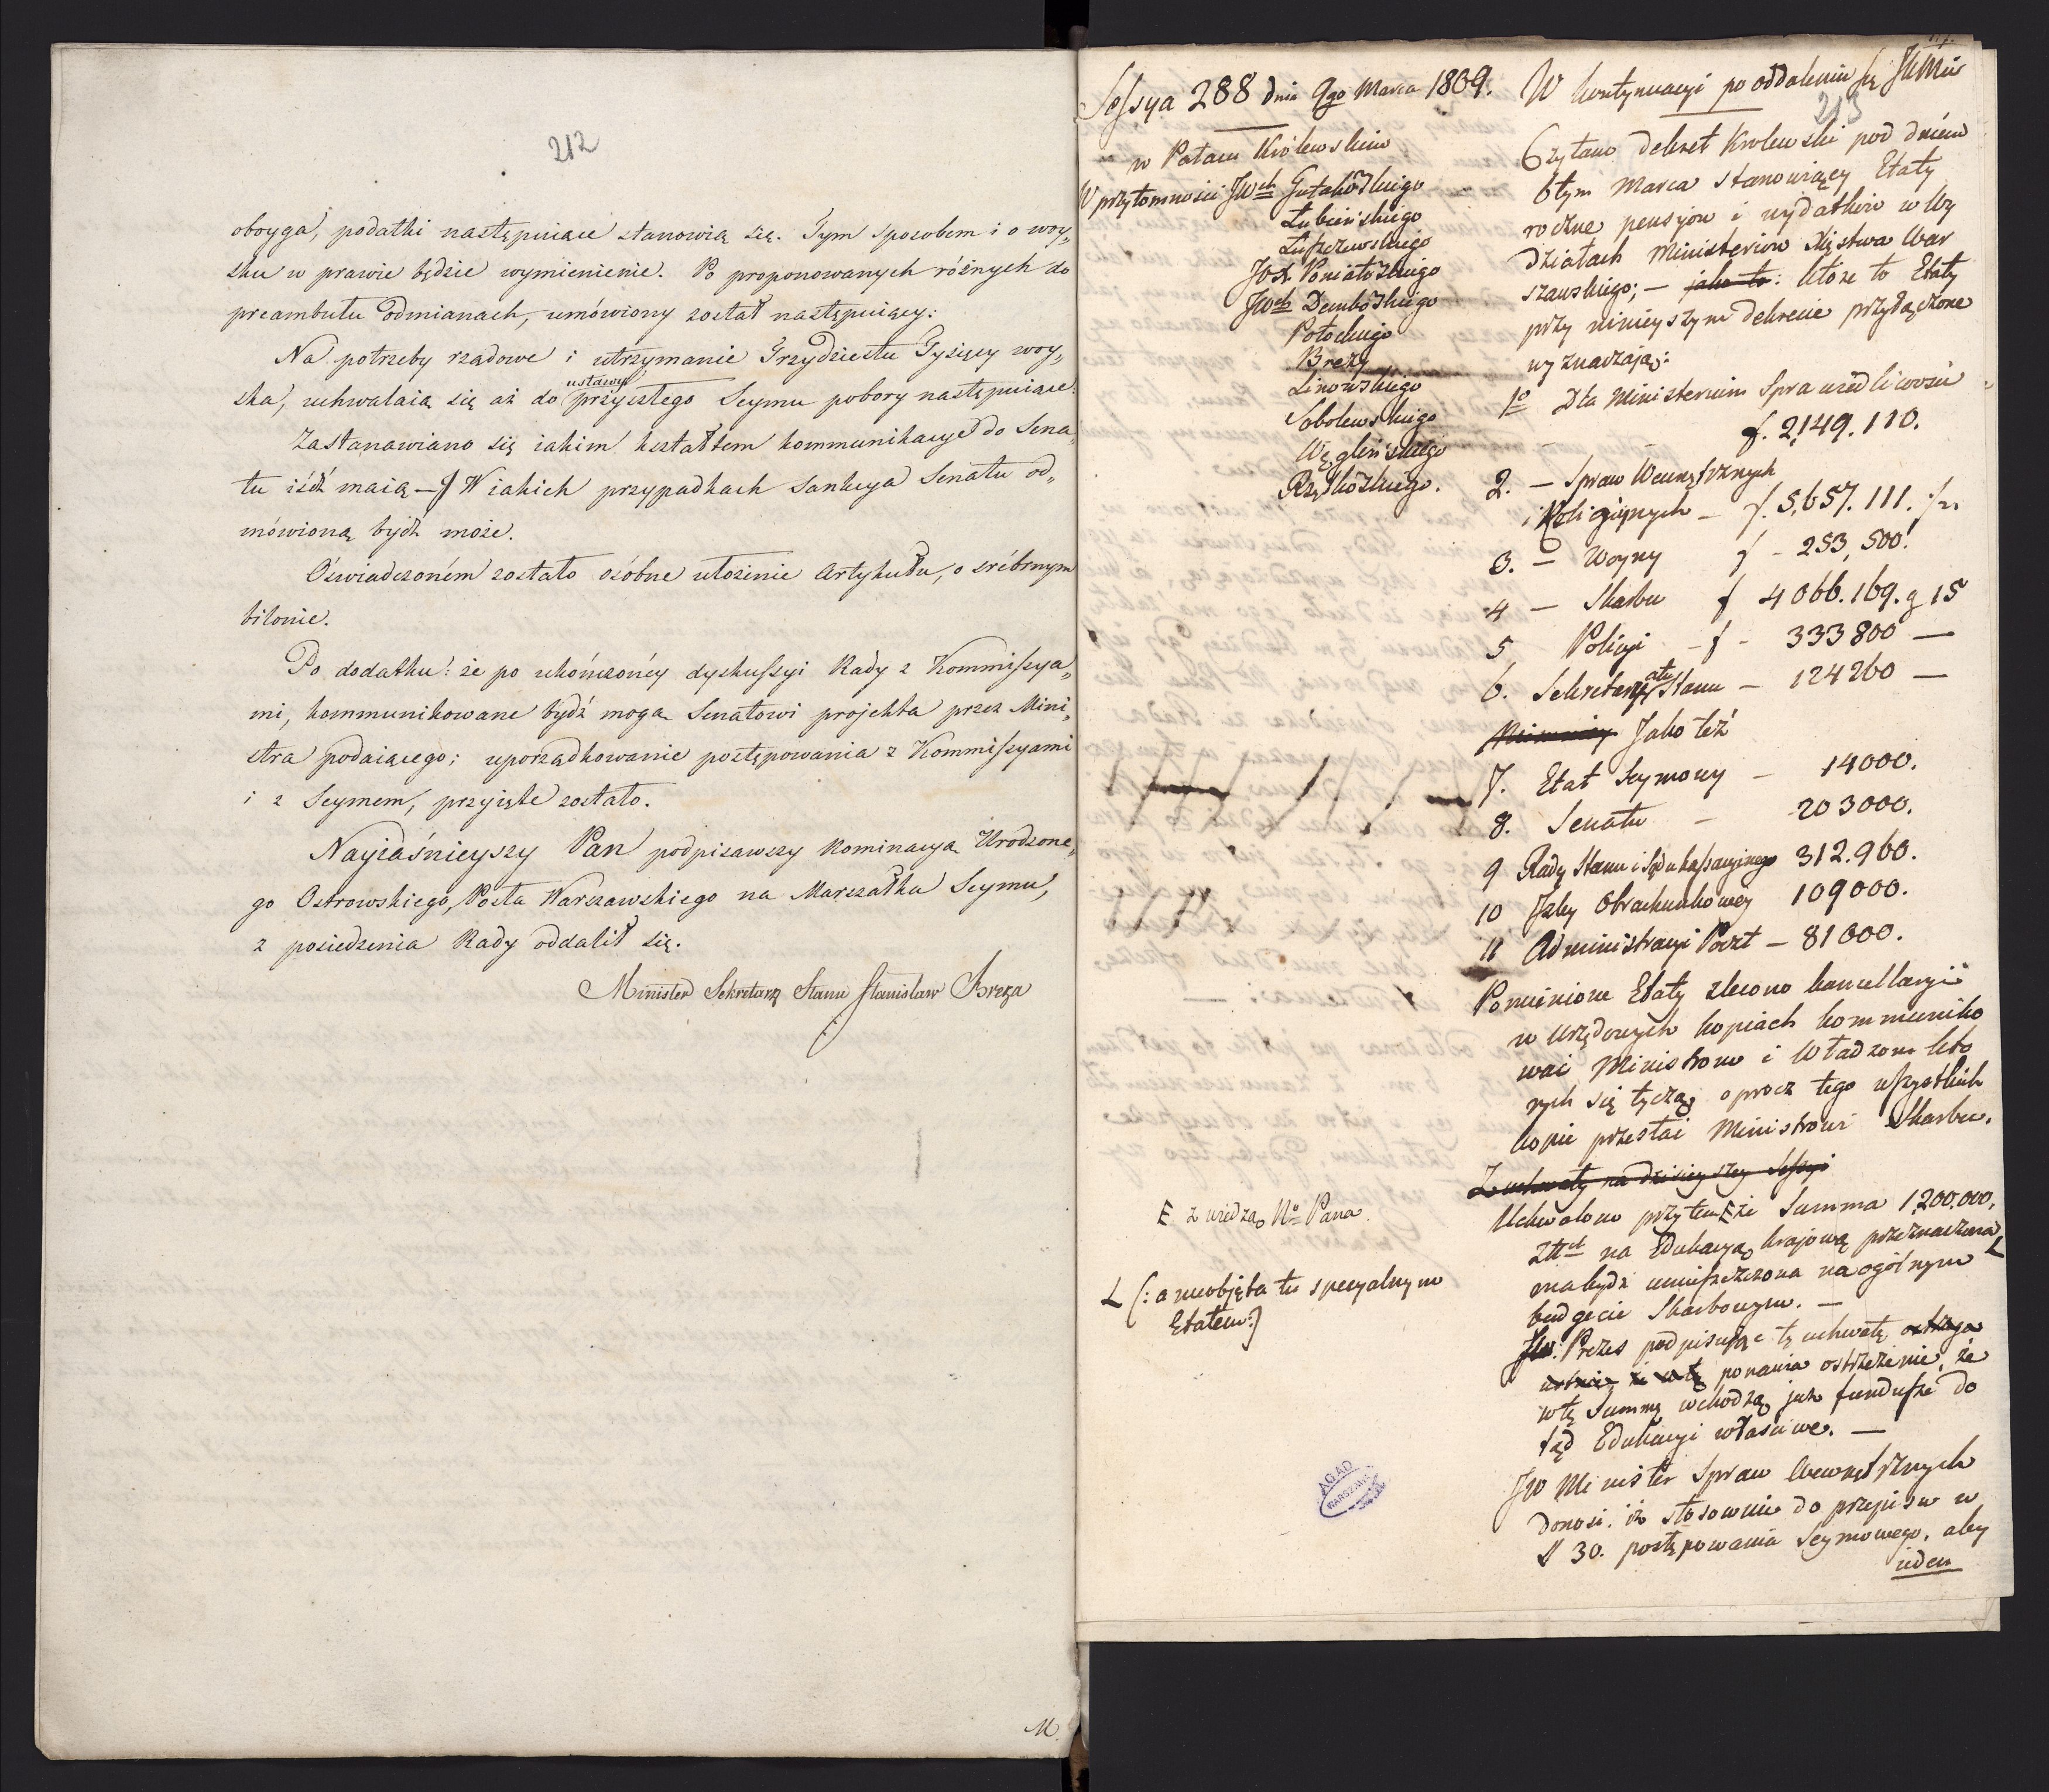 212
oboyga, podatki następuiące stanowią się. Tym sposobem i o woy„
sku w prawie będzie wymienienie. Po proponowanych różnych do
preambułu odmianach, umówiony został następuiący:
Na potrzeby rządowe i utrzymanie Trzydziestu Tysięcy woy„
ska, uchwalaią się aż do ustawy przyszłego Seymu pobory następuiące:
Zastanawiano się iakim kształtem kommunikacye do Sena„
tu iśdź maią — W iakich przypadkach Sankcya Senatu od„
mówioną bydź może.
Oświadczoném zostało osóbne ułożenie Artykułu, o srébrnym
bilonie.
Po dodatku: że po ukończonéy dyskussyi Rady z Kommissya„
mi, kommunikowane bydź mogą Senatowi projekta przez Mini„
stra podaiącego; uporządkowanie postępowania z Kommissyami
i z Seymem, przyięte zostało.
Nayiaśnieyszy Pan podpisawszy Nominacyą Urodzone„
go Ostrowskiego, Posła Warszawskiego na Marszałka Seymu,
z posiedzenia Rady oddalił się.
Minister Sekretarz Stanu Stanisław Breza
M
Sessya 288 dnia 9go Marca 1809.
w Pałacu Królewskim
W przytomności JWch Gutakowskiego
Łubieńskiego
Łuszczewskiego
JOX Poniatowskiego
JWch Dembowskiego
Potockiego
Brezy
Linowskiego
Sobolewskiego
Węgleńskiego
E z wiedzą No Pana
L (: a nieobjęta tu specyalnym
Etatem:)
213
W kontynuacyi po oddaleniu się JKMci
Czytano dekret Krolewski pod dniem
6tym Marca stanowiący Etaty
roczne pensyow i wydatkow w Wy
działach Ministeriow Xięstwa War
szawskiego; — jako to: Które to Etaty
przy ninieyszym dekrecie przyłączone
wyznaczają:
1o Dla Ministerium Sprawiedliwości
f. 2,149.110.
2. — Spraw Wewnętrznych
i Religijnych — f. 5,657.111.
3. — Woyny f — 253,500.
4 — Skarbu f 4066.169. g 15
5 Policyi — f — 333800 —
6. Sekretaryate Stanu — 124260 —
Jako też
7. Etat Seymowy — 14000.
8. Senatu — 203000.
9 Rady Stanu i Sądu kassacyinego 312.960.
10 Izby Obrachunkowey 109000.
11 Administracyi Poczt — 81000.
Pomienione Etaty zlecono kancellaryi
w urzędowych kopiach kommuniko
wać Ministrom i Władzom kto
rych się tyczą, oprocz tego wszystkich
kopie przesłać Ministrowi Skarbu.
Z uchwały na dzisieyszey Sessyi
Uchwalono przytem E że Summa 1,200.000.
złłch na Edukacyą krajową przeznaczona L
ma bydź umieszczona na ogólnym
budgecie Skarbowym. —
JW. Prezes podpisując tę uchwałę
ponawia ostrzeżenie, że
w tę Summę wchodzą już fundusze do
tąd Edukacyi właściwe. —
JW Minister Spraw Wewnętrznych
donosi, iż stosownie do przepisu w
§ 30. postępowania Seymowego, aby
ieden
AGAD
WARSZAWA